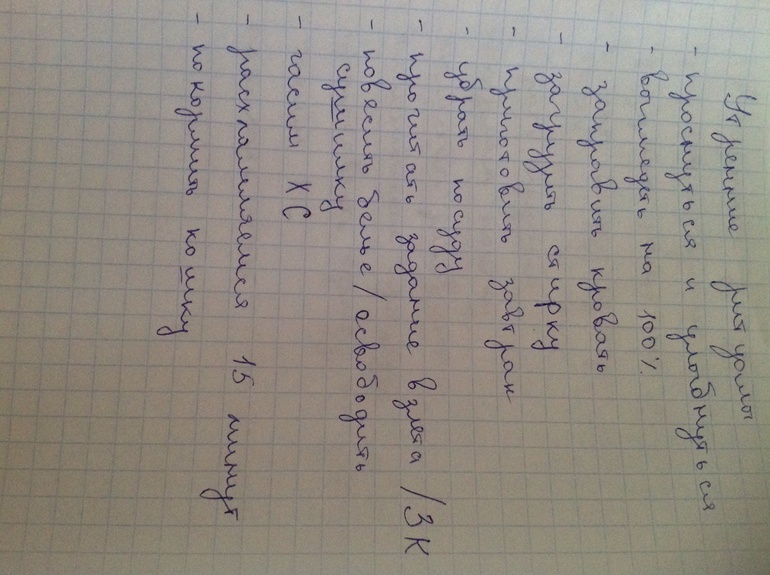 Утренние ритуалы
- проснуться и улыбнуться
- выглядеть на 100%
- заправить кровать
- загрузить стирку
- приготовить завтрак
- убрать посуду
- прочитать задание взлёта / ЗК
- повесить белье / освободить
сушилку
- гасим ХС
- расхламляемся 15 минут
- покормить кошку